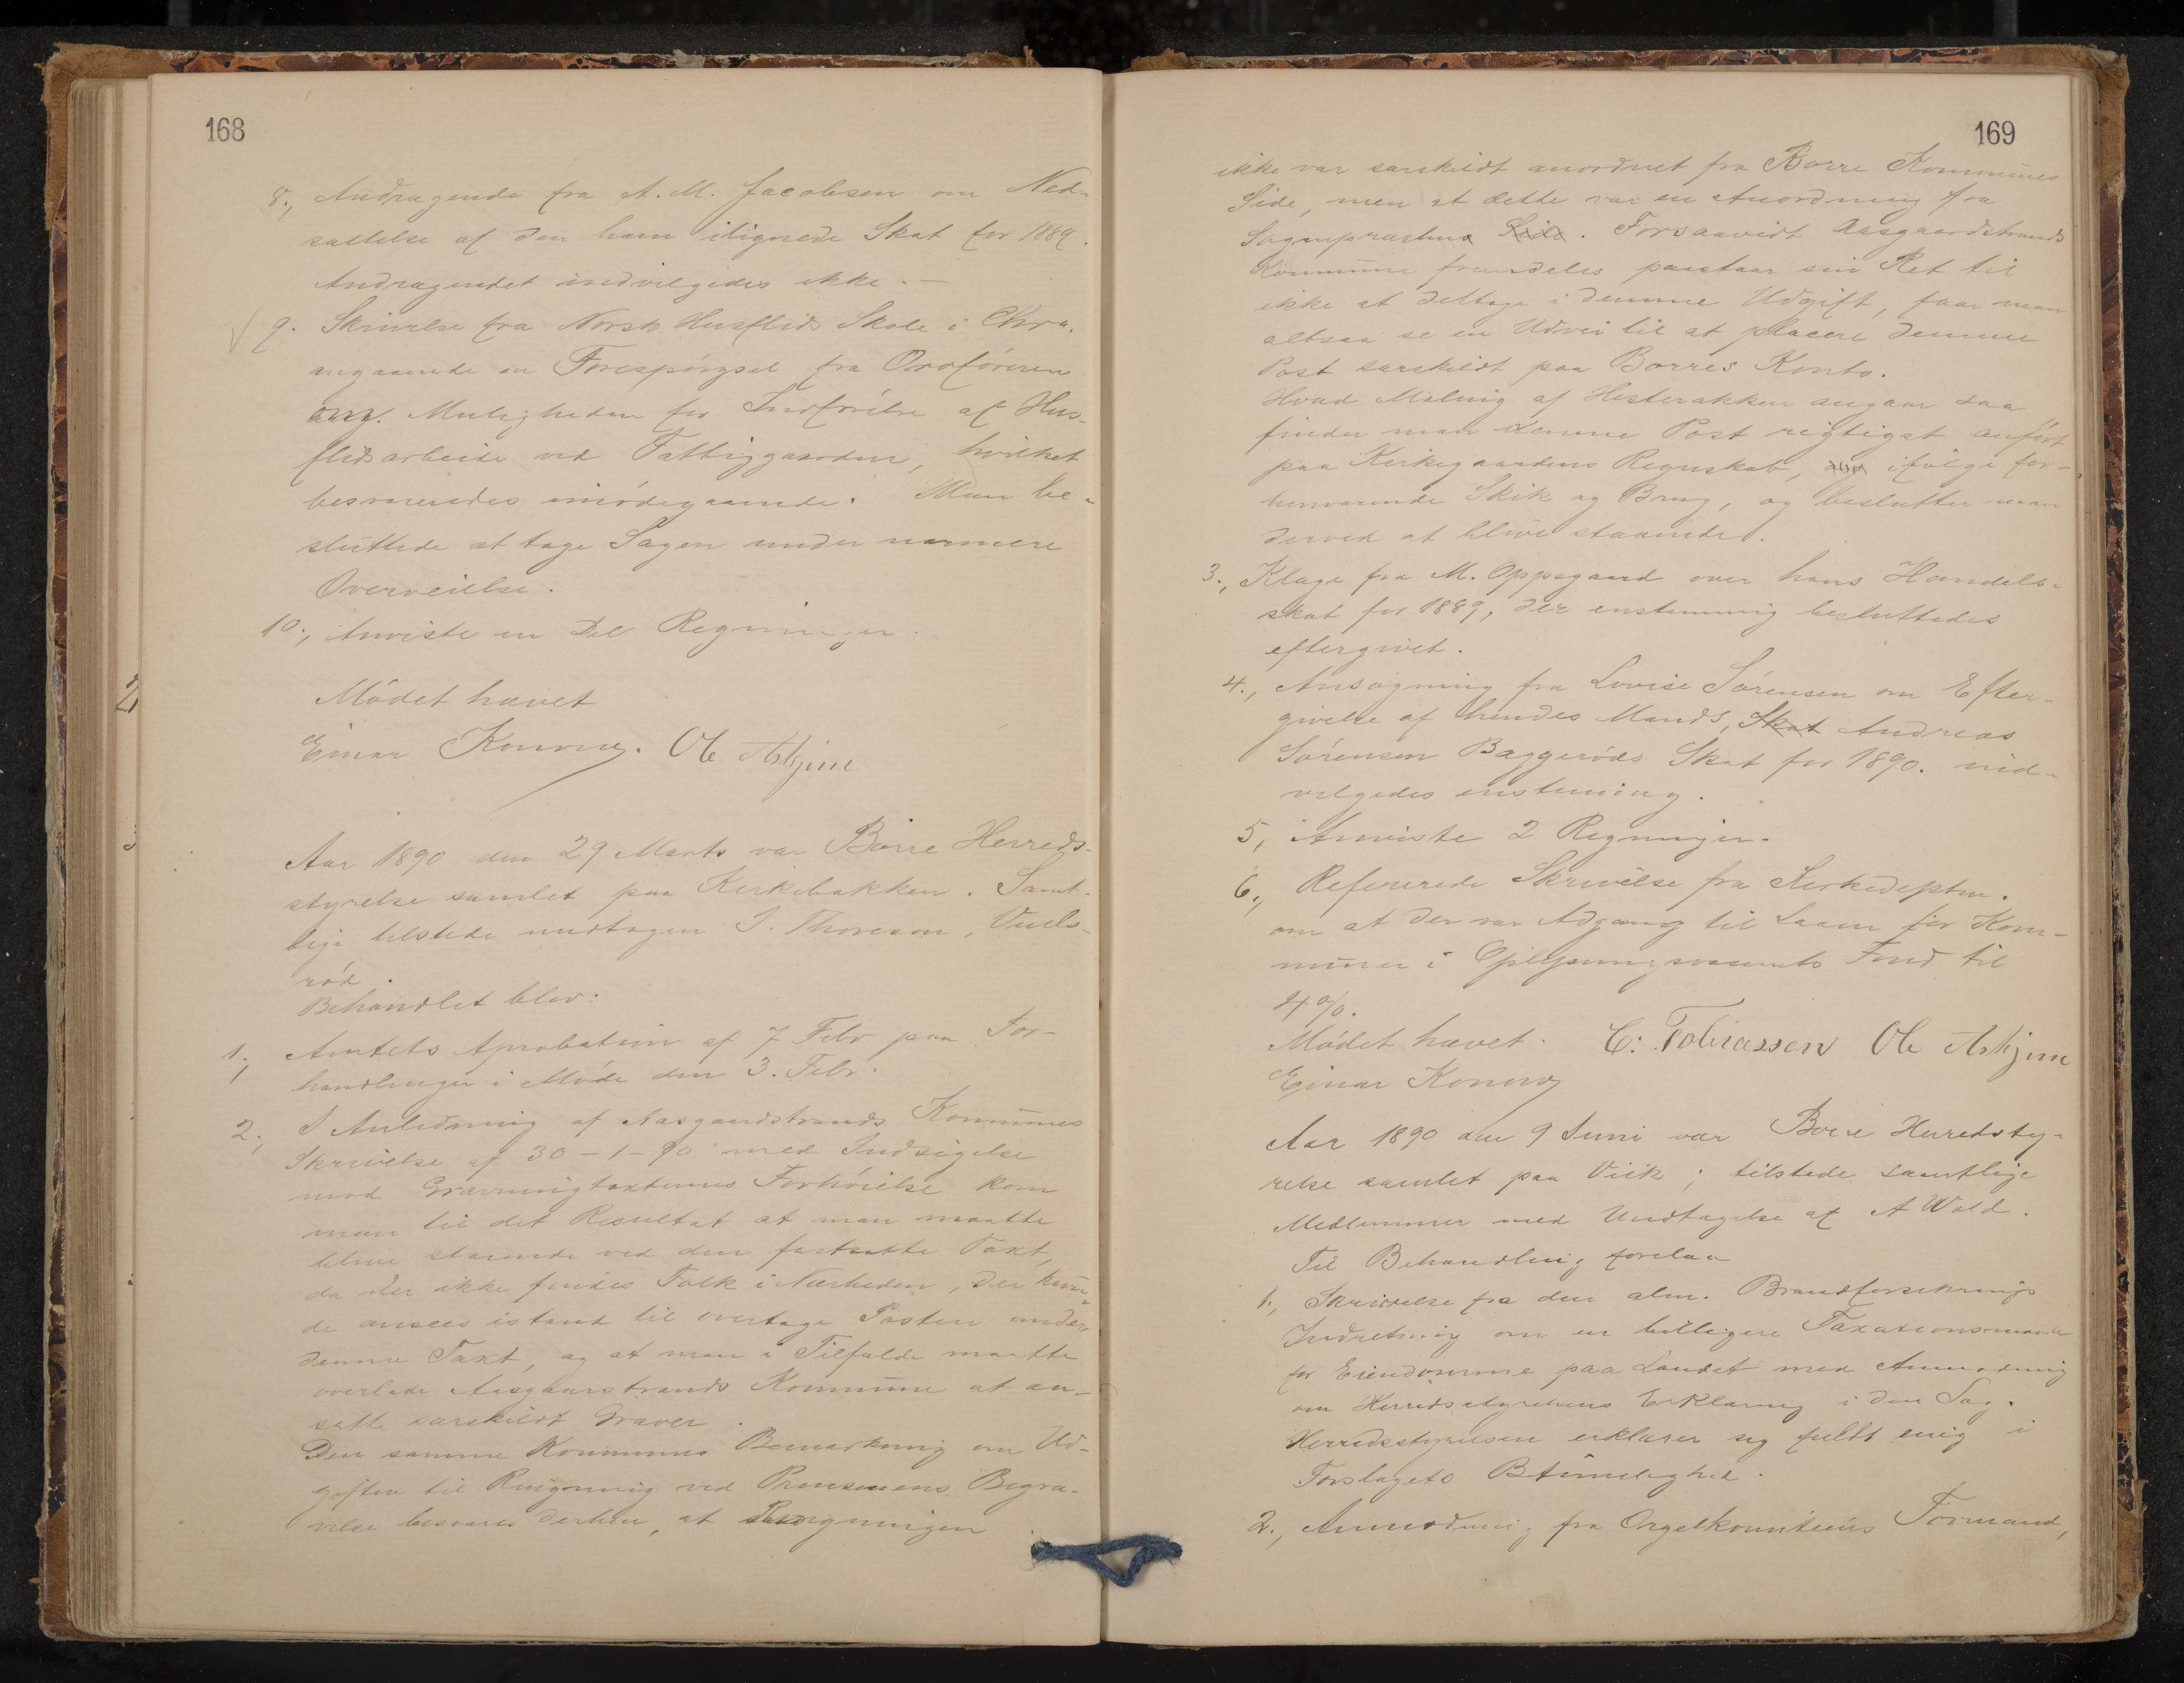 168
8., Andragende fra A. M. Jacobsen om Ned-
sættelse af den ham ilignede Skat for 1889.
Andragendet indvilgedes ikke. —
9. Skrivelse fra Norsk Husflids Skole i Chra.
angaaende en Forespørgsel fra Ordføreren
ang. Muligheden for Indførelse af Hus-
flidsarbeide ved Fattiggaarden, hvilket
besvareredes imødegaaende. Man be-
sluttede at tage Sagen under nærmere
Overveielse.
10., Anviste en Del Regninger.
Mödet hævet
Einar Konow. Ole Askjem
Aar 1890 den 29 Marts var Borre Herreds-
styrelse samlet paa Kirkebakken. Samt-
lige tilstede undtagen I. Thoreson,
rød.
Behandlet blev:
1., Amtets Aprobation af 7 Febr paa For-
handlinger i Møde den 3. Febr.
2., I Anledning af Aasgaardstrands Kommunes
Skrivelse af 30-1-90 med Indsigelse
mod Gravningtaxternes Forhøielse kom
man til det Resultat at man maatte
blive staaende ved den fastsatte Taxt,
da der ikke findes Folk i Nærheden, der kun-
de ansees istand til overtage Posten under
denne Taxt, og at man i Tilfælde maatte
overlade Aasgaarstrands Kommune at an-
sætte særskildt Graver.
Den samme Kommunes Bemærkning om Ud-
giften til Ringning ved Prinsessens Begra-
velse besvares derhen, at Ringningen
169
ikke var særskildt anordnet fra Borre Kommunes
Side, men at dette var en Anordning fra
Sogneprestens Side. Forsaavidt Aasgaardstrands
Kommune fremdeles paastaar sin Ret til
ikke at deltage i denne Udgift, faar man
altsaa se en Udvei til at placere denne
Post særskildt paa Borres Konto.
Hvad Maling af Hesterækken angaar saa
finder man denne Post rigtigst anført
paa Kirkegaardens Regnskab, og ifølge for-
henværende Skik og Brug, og beslutter man
derved at blive staaende.
3., Klage fra M. Oppegaard over hans Handels-
skat for 1889, der enstemmig besluttedes
eftergivet.
4., Ansøgning fra Lovise Sørensen om Efter-
givelse af hendes Mands, Skat Andreas
Sørensen Baggerøds Skat for 1890. ind-
vilgedes enstemmig.
5, Anviste 2 Regninger.
6., Refererede Skrivelse fra Kirkedeptm.
om at der var Adgang til Laan for Kom-
muner i Oplysningsvæsenets Fond til
4%.
Mödet hævet. C. Tobiassen Ole Askjem
Einar Konow
Aar 1890 den 9 Juni var Borre Herredsty-
relse samlet paa Viik; tilstede samtlige
Medlemmer med Undtagelse af A Wold.
Til Behandling forelaa
1., Skrivelse fra den alm. Brandforsikrings
Indretning om en billigere Taxationsmaade
for Eiendomme paa Landet med Anmodning
om Herredsstyrelsens Erklæring i den Sag.
Herredsstyrelsen erklærer sig fuldt enig i
Forslagets Betimelighed.
2., Anmodning fra Orgelkomiteens Formand,